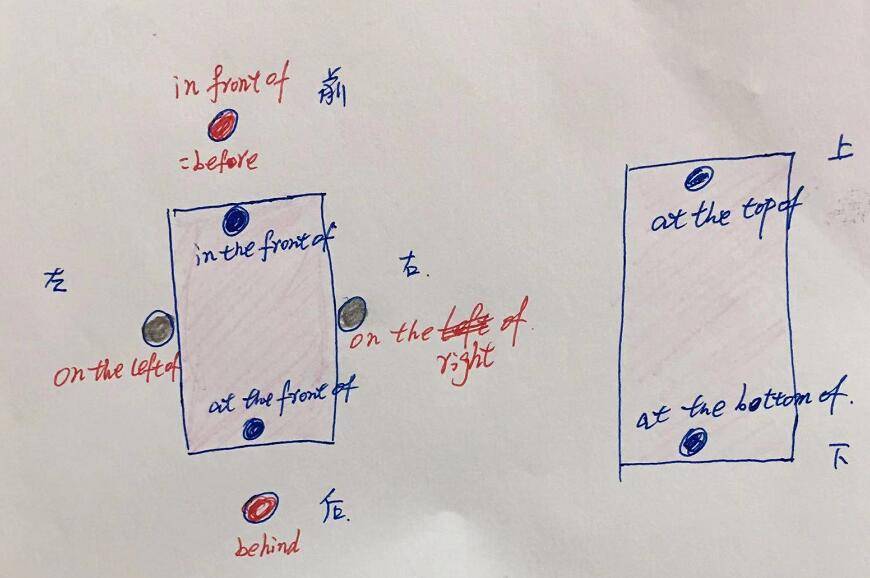 in front of 前
=before
in the front of
左
右.
on the left of
on the left of.
right
at the front of
后.
behind
上
at the top of
at the bottom of.
下